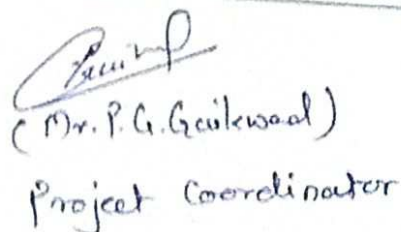 (Mr. P. G. Gaikwad)
Project Coordinator